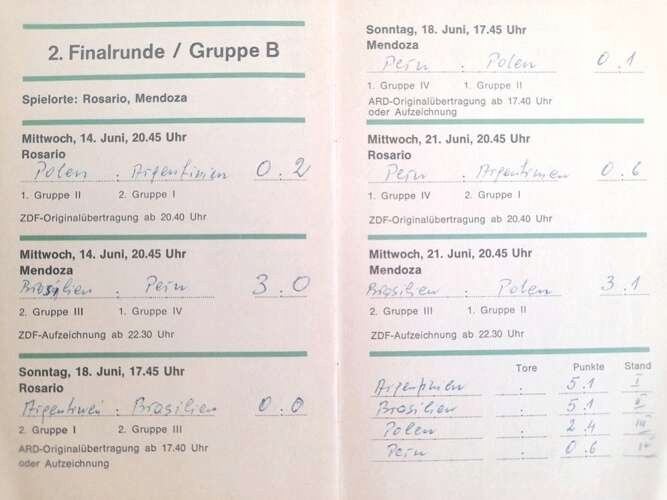 2. Finalrunde / Gruppe B
Spielorte: Rosario, Mendoza
Mittwoch, 14. Juni, 20.45 Uhr
Rosario
Polen : Argentinien 0:2
1. Gruppe II 2. Gruppe I
ZDF-Originalübertragung ab 20.40 Uhr
Mittwoch, 14. Juni, 20.45 Uhr
Mendoza
Brasilien : Peru 3:0
2. Gruppe III 1. Gruppe IV
ZDF-Aufzeichnung ab 22.30 Uhr
Sonntag, 18. Juni, 17.45 Uhr
Rosario
Argentinien : Brasilien 0:0
2. Gruppe I 2. Gruppe III
ARD-Originalübertragung ab 17.40 Uhr
oder Aufzeichnung
Sonntag, 18. Juni, 17.45 Uhr
Mendoza
Peru : Polen 0:1
1. Gruppe IV 1. Gruppe II
ARD-Originalübertragung ab 17.40 Uhr
oder Aufzeichnung
Mittwoch, 21. Juni, 20.45 Uhr
Rosario
Peru : Argentinien 0:6
1. Gruppe IV 2. Gruppe I
ZDF-Originalübertragung ab 20.40 Uhr
Mittwoch, 21. Juni, 20.45 Uhr
Mendoza
Brasilien : Polen 3:1
2. Gruppe III 1. Gruppe II
ZDF-Aufzeichnung ab 22.30 Uhr
Tore Punkte Stand
Argentinien : 5:1 I
Brasilien : 5:1 II
Polen : 2:4 III
Peru : 0:6 IV